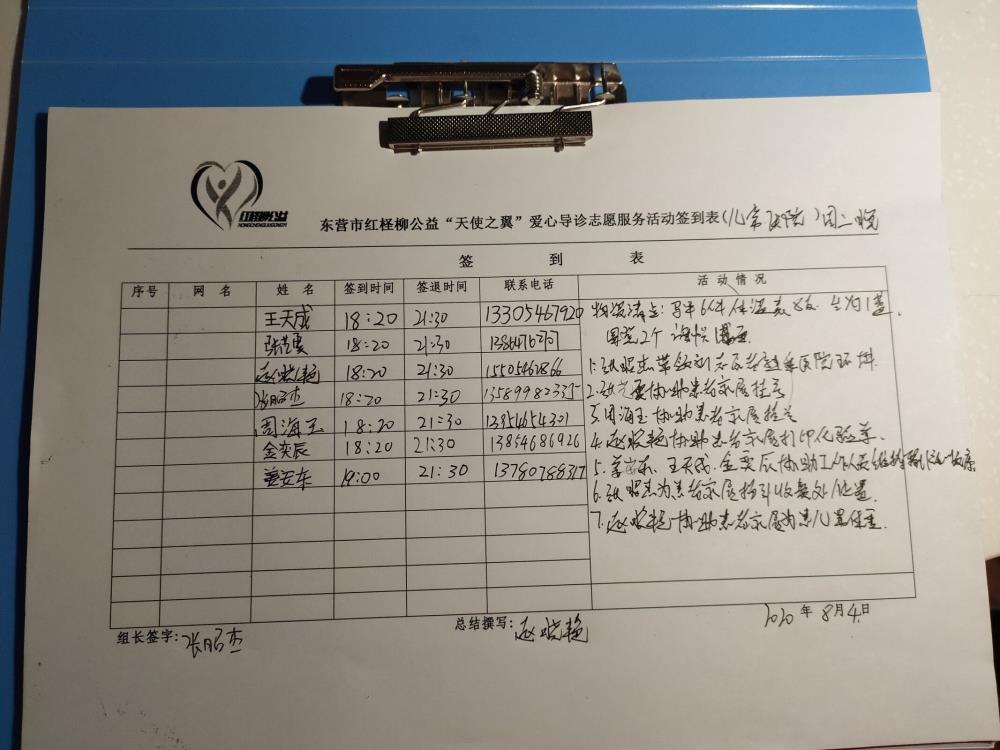 红柽柳公益
HONGCHENGLIUGONGYI
东营市红柽柳公益“天使之翼”爱心导诊志愿服务活动签到表(儿童医院)周二晚
签 到 表
序号 网 名 姓 名 签到时间 签退时间 联系电话 活 动 情 况
王天成 18:20 21:30 13305467920
18:20 21:30
赵晓艳 18:20 21:30 15505461866
张昭杰 18:20 21:30 13589982335
周海玉 18:20 21:30 13854654301
金奕辰 18:20 21:30 13864686926
姜安东 19:00 21:30 13780788317
物资清点:马甲6件 体温表8支
1.张昭杰带领新志愿者熟悉医院环境.
2. 协助患者家属挂号
3.周海玉协助患者家属挂号
4.赵晓艳协助患者家属打印化验单.
5.姜安东、王天成、金奕辰协助工作人员维持
6.张昭杰为患者家属指引收费处位置.
7.赵晓艳协助患者家属为患儿量体重.
组长签字:张昭杰
总结撰写:赵晓艳
2020年8月4日